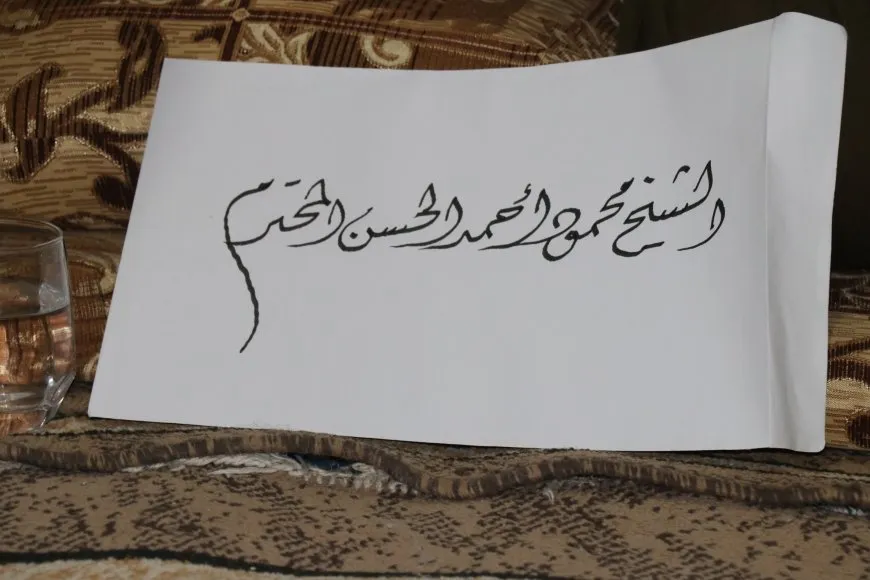 الشيخ محمود أحمد الحسن المحترم